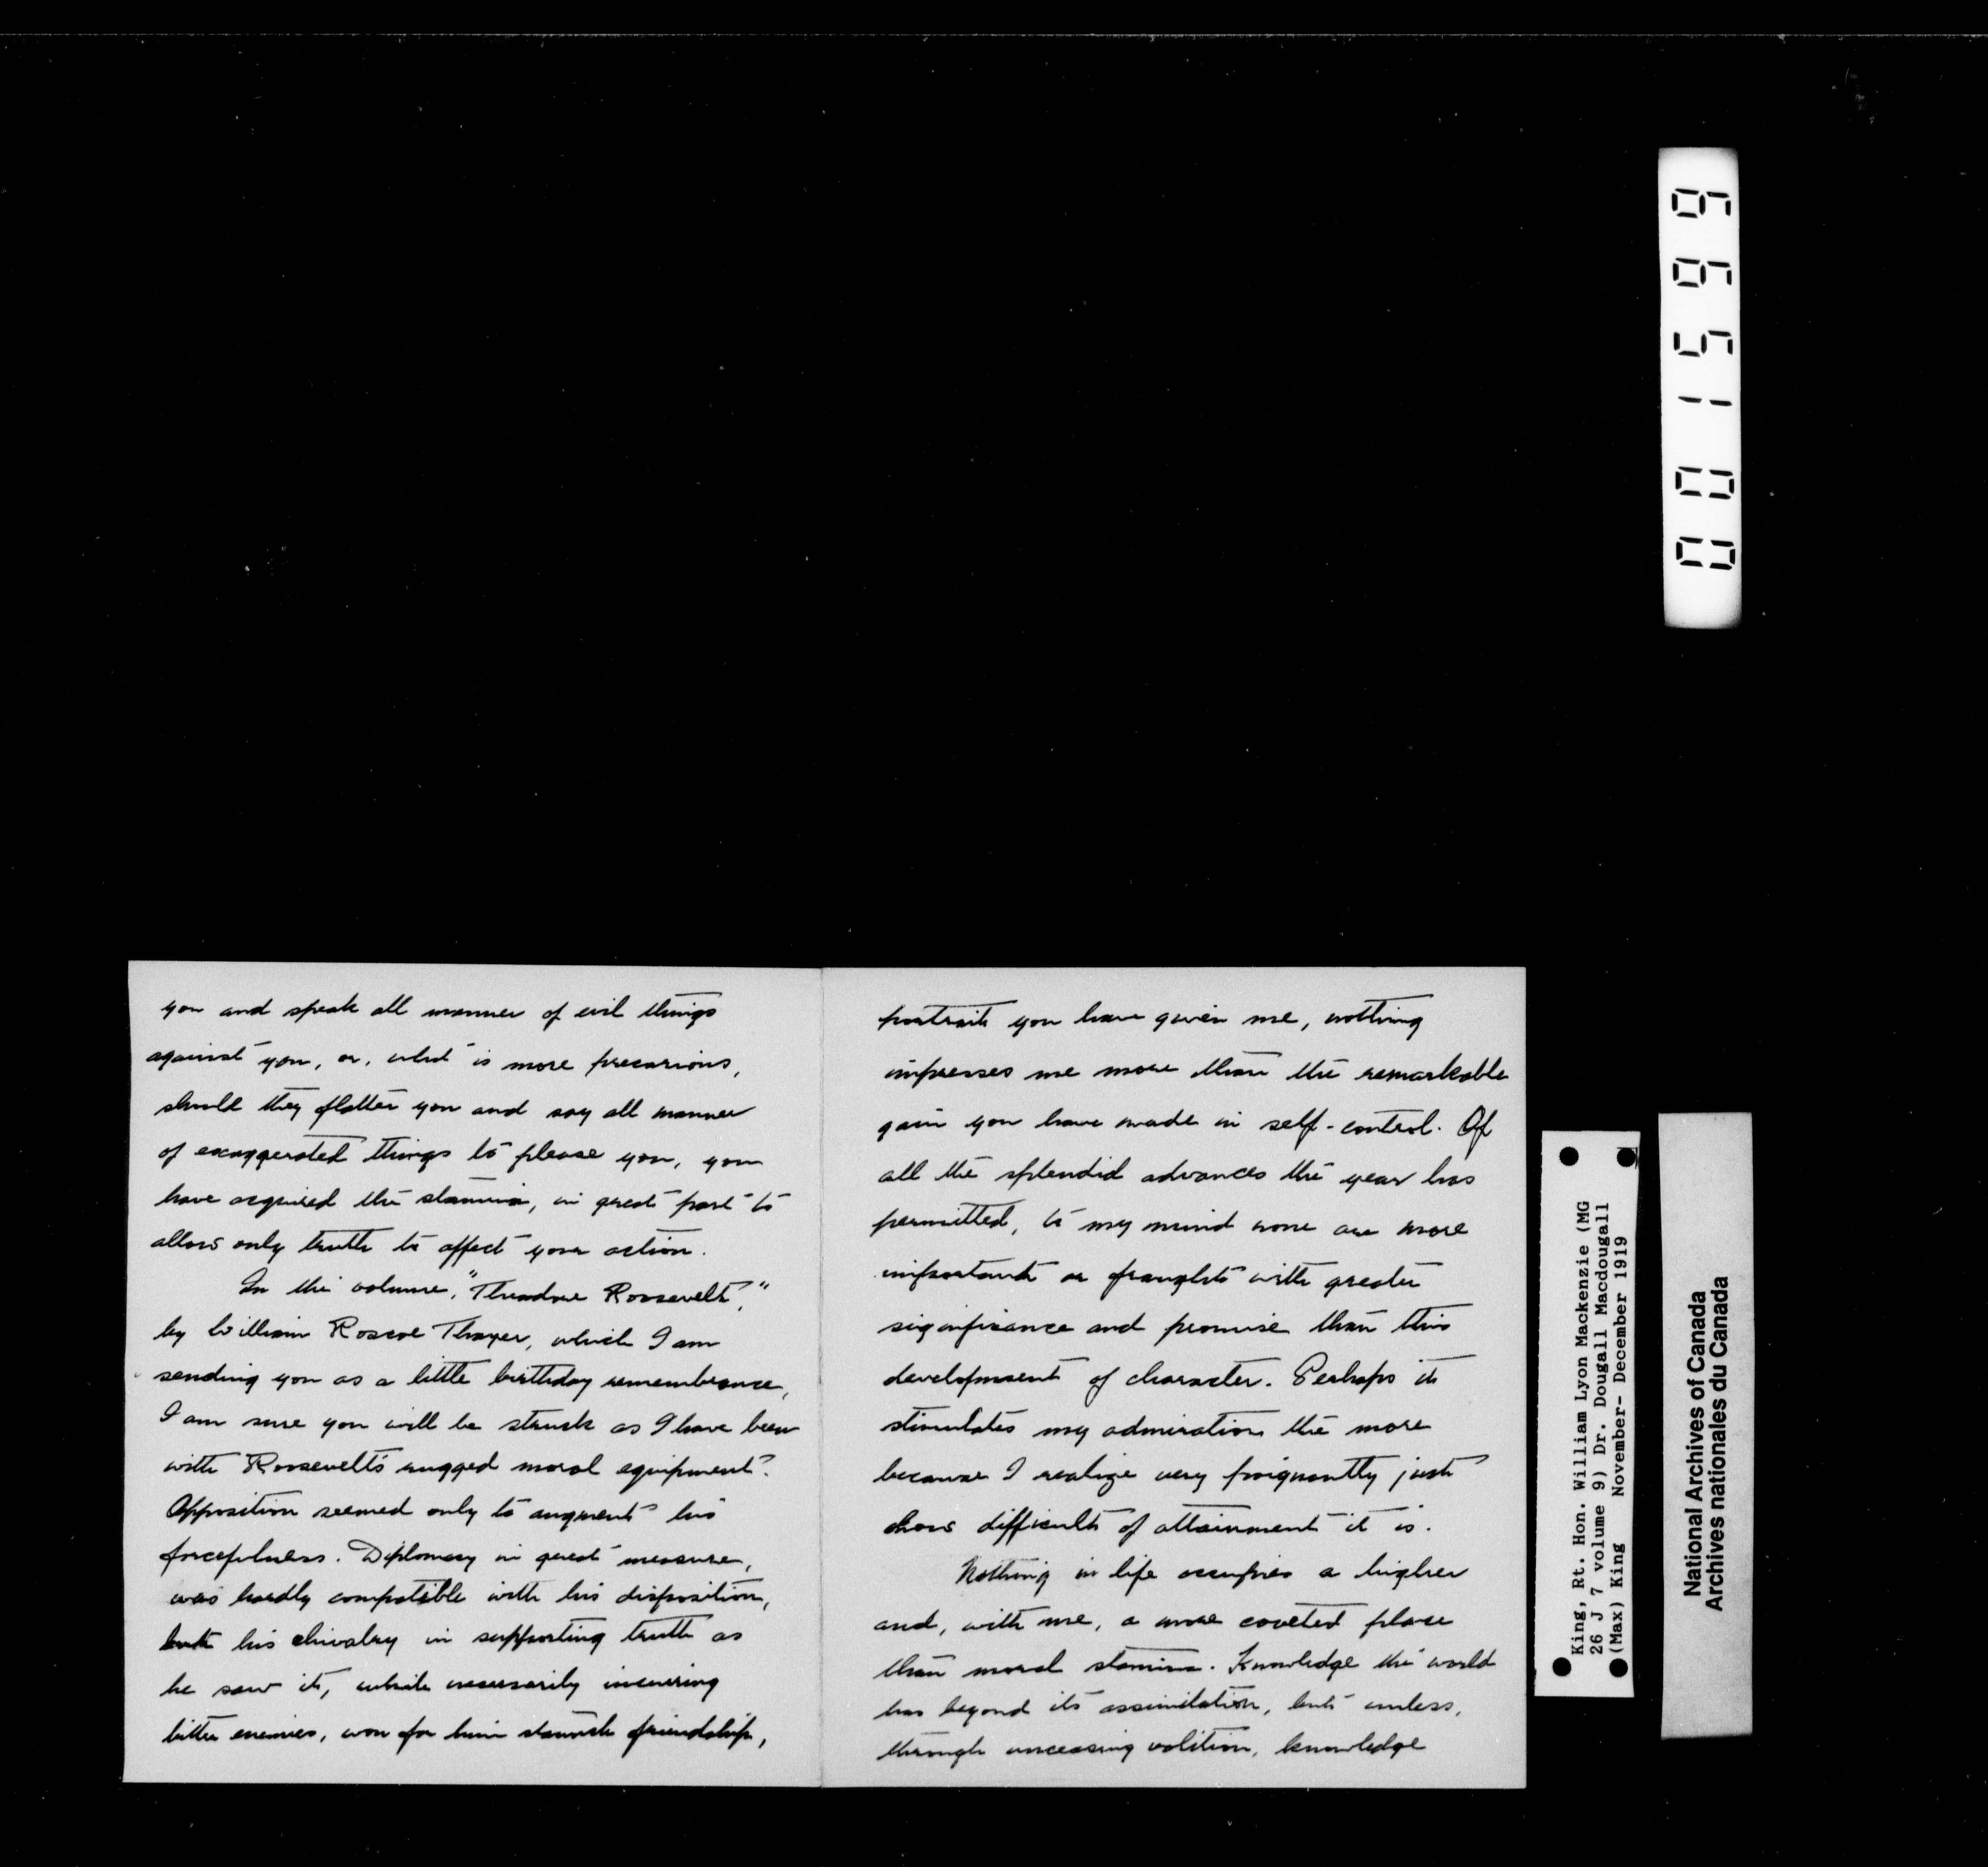 you and speak all manner of evil things
against you, or, what is more precarious,
should they flatter you and say all manner
of exaggerated things to please you, you
have acquired the stamina, in great part to
allow only truth to affect your action.
In the volume, "Theodore Roosevelt,"
by William Roscoe Thayer, which I am
sending you as a little birthday remembrance,
I am sure you will be struck as I have been
with Roosevelt's rugged moral equipment.
Opposition seemed only to augment his
forcefulness. Diplomacy in great measure,
was hardly compatible with his disposition,
but his chivalry in supporting truth as
he saw it, while necessarily incurring
bitter enemies, won for him staunch friendship,
portrait you have given me, nothing
impresses me more than the remarkable
gain you have made in self-control. Of
all the splendid advances the year has
permitted, to my mind none are more
important or fraught with greater
significance and promise than this
development of character. Perhaps it
stimulates my admiration the more
because I realize very poignantly just
how difficult of attainment it is.
Nothing in life occupies a higher
and, with me, a more coveted place
than moral stamina. Knowledge the world
has beyond its assimilation, but unless,
through unceasing volition, knowledge
King, Rt. Hon. William Lyon Mackenzie (MG
26 J 7 volume 9) Dr. Dougall Macdougall
(Max) King November- December 1919
National Archives of Canada
Archives nationales du Canada
001566